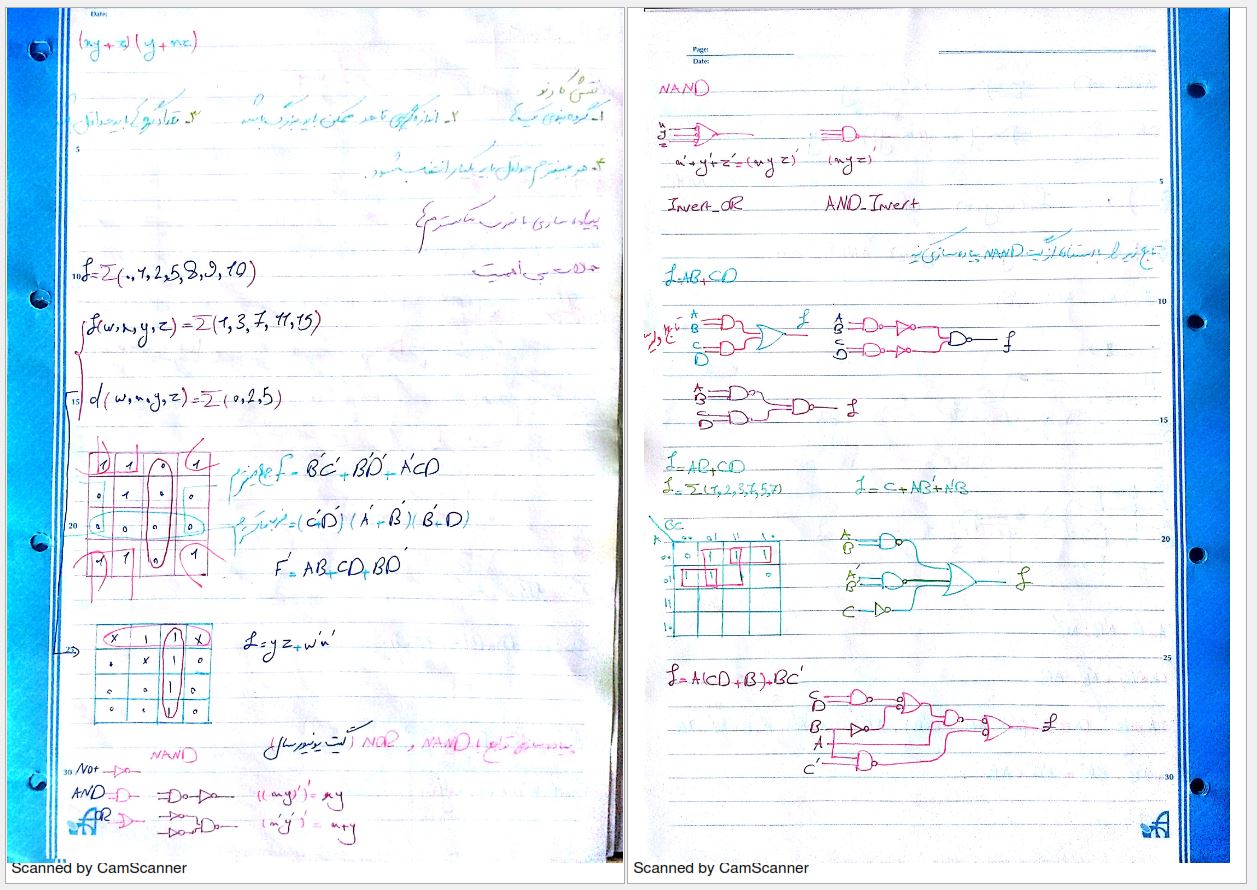 Date:
(xy+z)(y+xz)
نقش کارنو
۱- گروه بندی یک ها ۲- اندازه گروه ها تا حد ممکن باید بزرگ باشد ۳- تعداد گروه ها باید حداقل
۴- هر مینترم حداقل باید یکبار انتخاب شود.
پیاده سازی با ضرب ماکسترم ها
حالات بی اهمیت
f=Σ(0,1,2,5,8,9,10)
f(w,x,y,z)=Σ(1,3,7,11,15)
d(w,x,y,z)=Σ(0,2,5)
1 1 0 1
0 1 0 0
0 0 0 0
1 1 0 1
f= B'C'+B'D'+A'CD
=(C'+D')(A'+B')(B'+D)
F'= AB+CD+BD'
x 1 1 x
0 x 1 0
0 0 1 0
0 0 1 0
f=yz+w'x'
پیاده سازی توابع با NAND و NOR (گیت یونیورسال)
NAND
Not
AND ((xy)')'=xy
OR (x'y')'=x+y
Scanned by CamScanner
Page:
Date:
NAND
x
y
z
x'+y'+z'=(xyz)' (xyz)'
Invert_OR AND_Invert
تابع زیر را با استفاده از گیت NAND پیاده سازی کنید
f=AB+CD
A
B
C
D
f
A
B
C
D
f
A
B
C
D
f
f=AB+CD
f=Σ(1,2,3,4,5,7) f=C+AB'+A'B
BC
A 00 01 11 10
00 0 1 1 1
01 1 1 1 0
11
10
A
B'
A'
B
C'
f
f=A(CD+B)+BC'
C
D
B
A
C'
f
Scanned by CamScanner